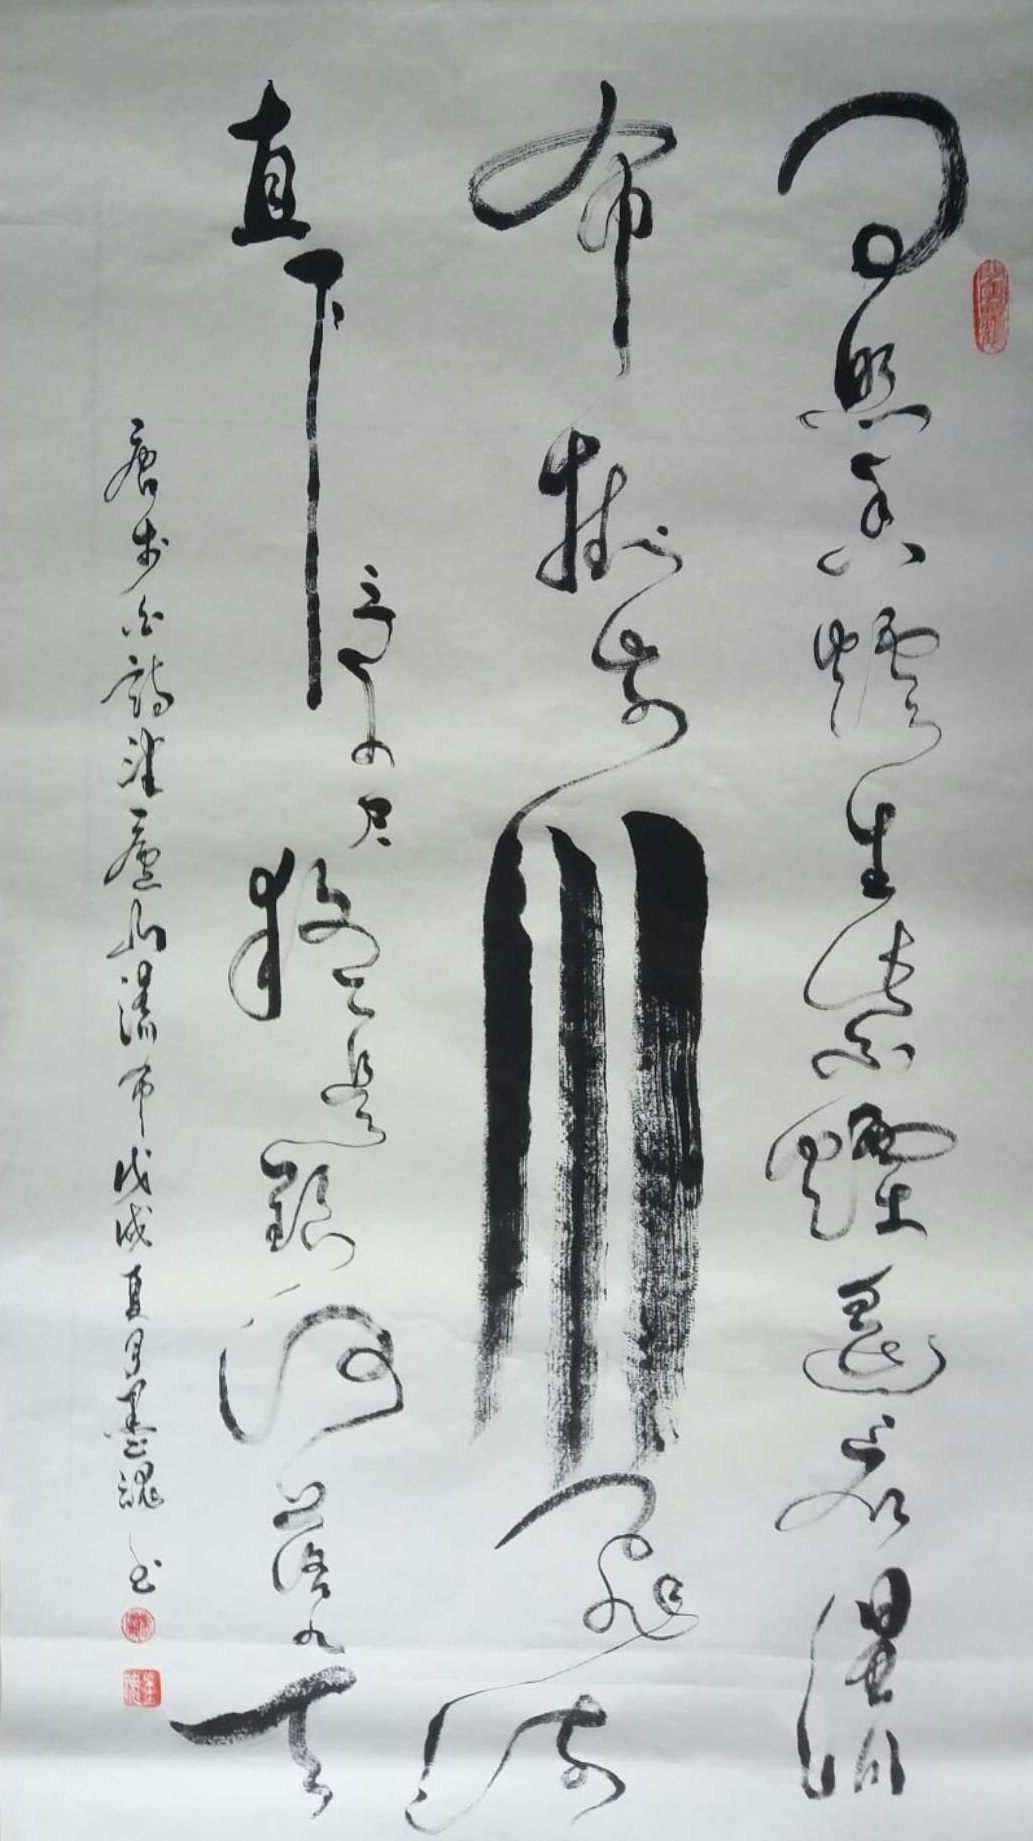 日照香爐生紫煙遙看瀑
布掛前川飛流
直下三千尺疑是銀河落九天
唐李白詩望廬山瀑布戊戌夏月墨魂书